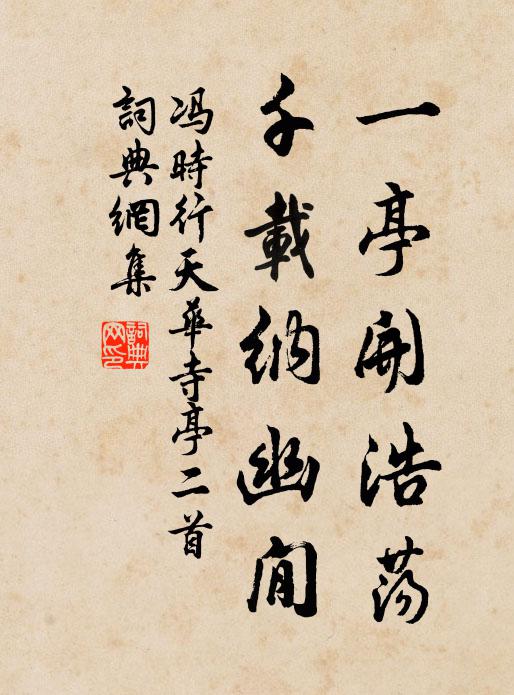 一亭開浩蕩
千載納幽閒
冯時行天華寺亭二首
詞典網集
詞典网印